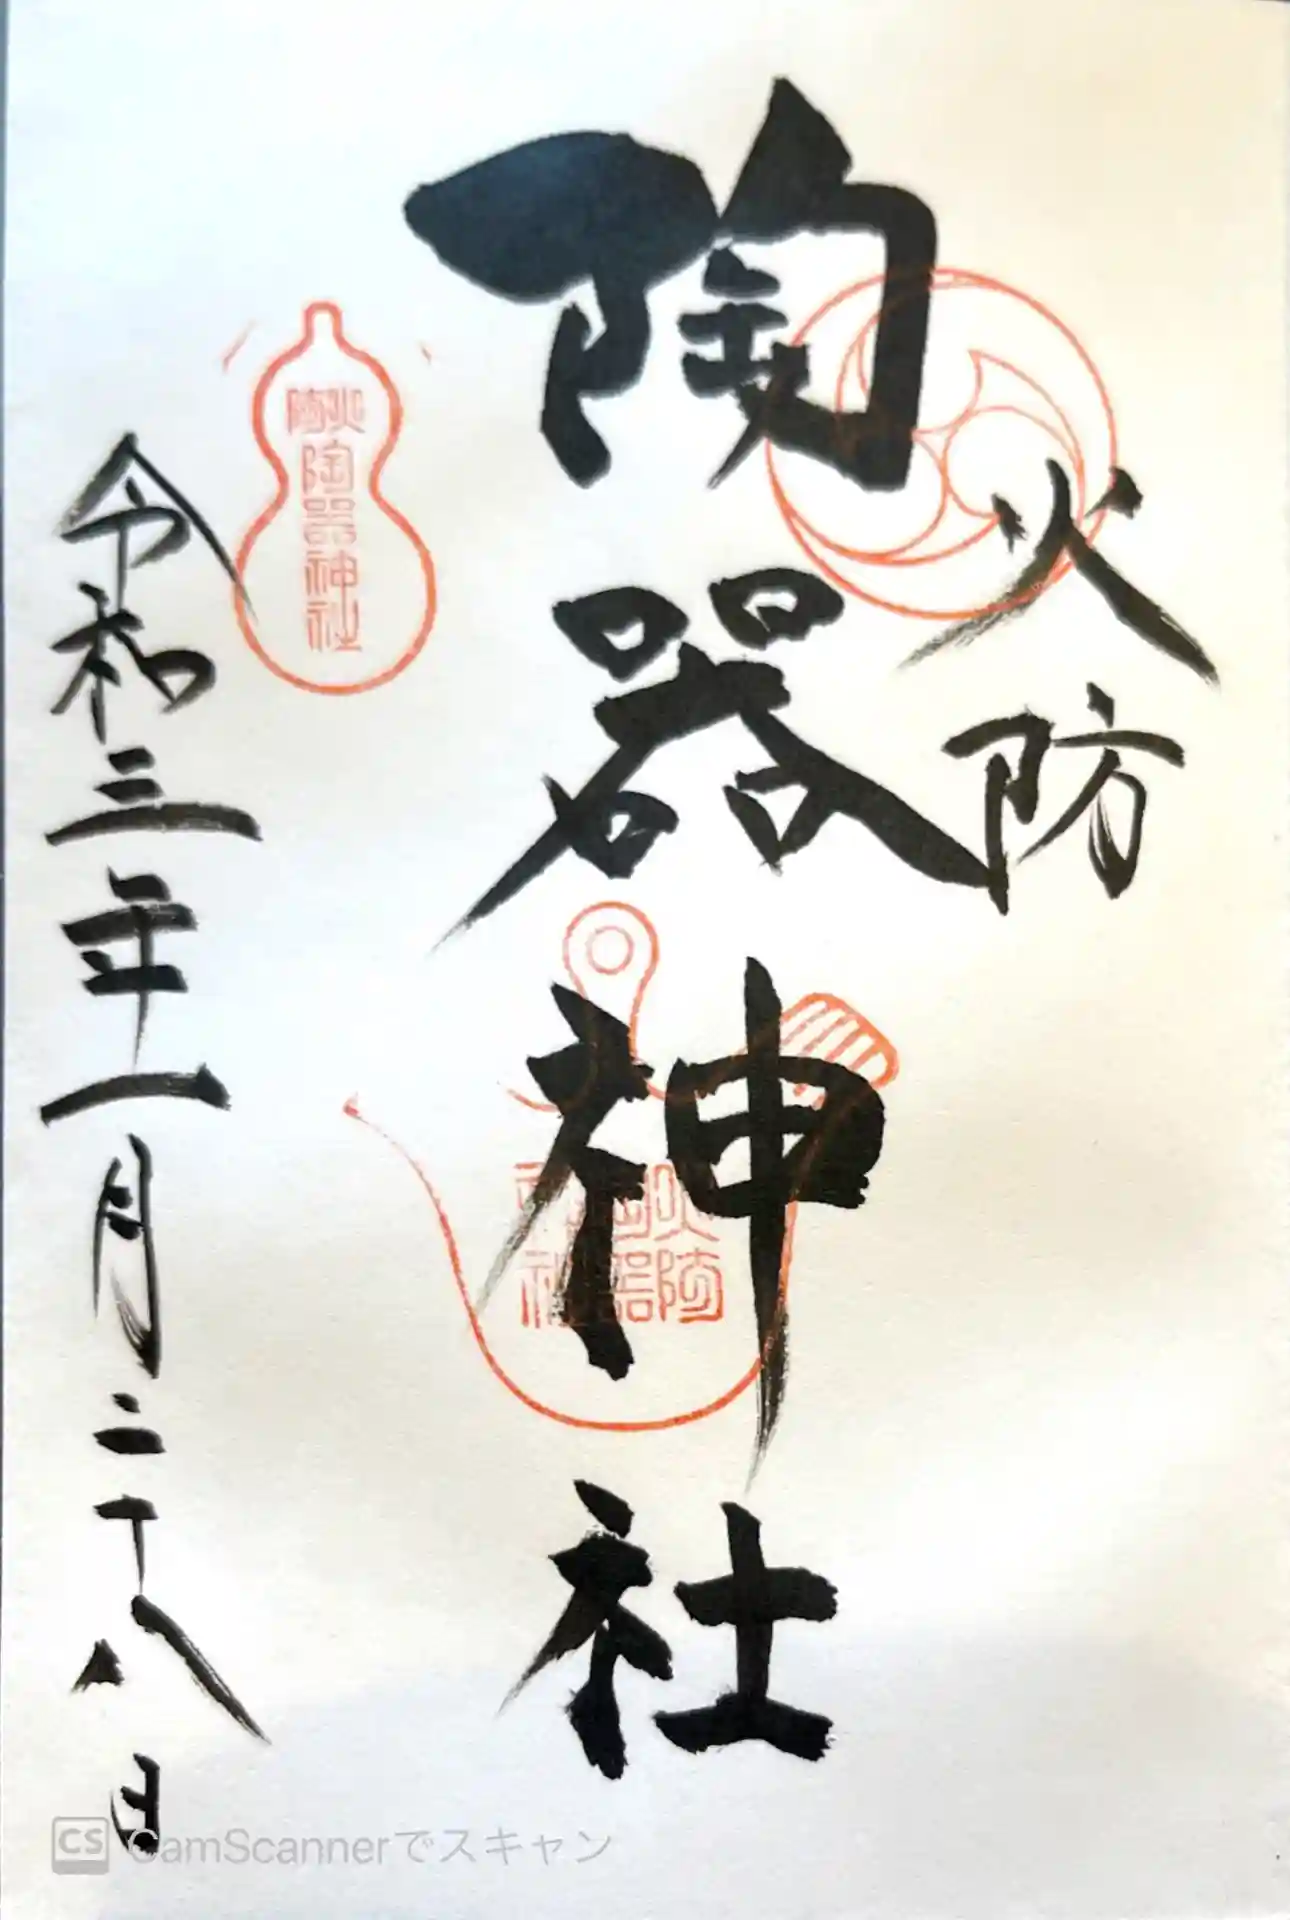 火防
陶器神社
火防
陶器神社
火防
陶器
神社
令和三年一月二十八日
CS CamScannerでスキャン